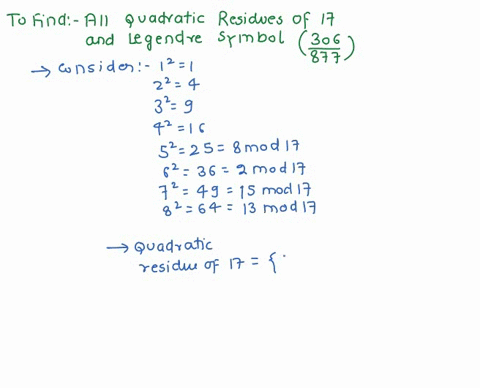 To Find:- All Quadratic Residues of 17
and Legendre Symbol (306/877)
→ Consider:- 1² = 1
2² = 4
3² = 9
4² = 16
5² = 25 = 8 mod 17
6² = 36 = 2 mod 17
7² = 49 = 15 mod 17
8² = 64 = 13 mod 17
→ Quadratic
residue of 17 = {